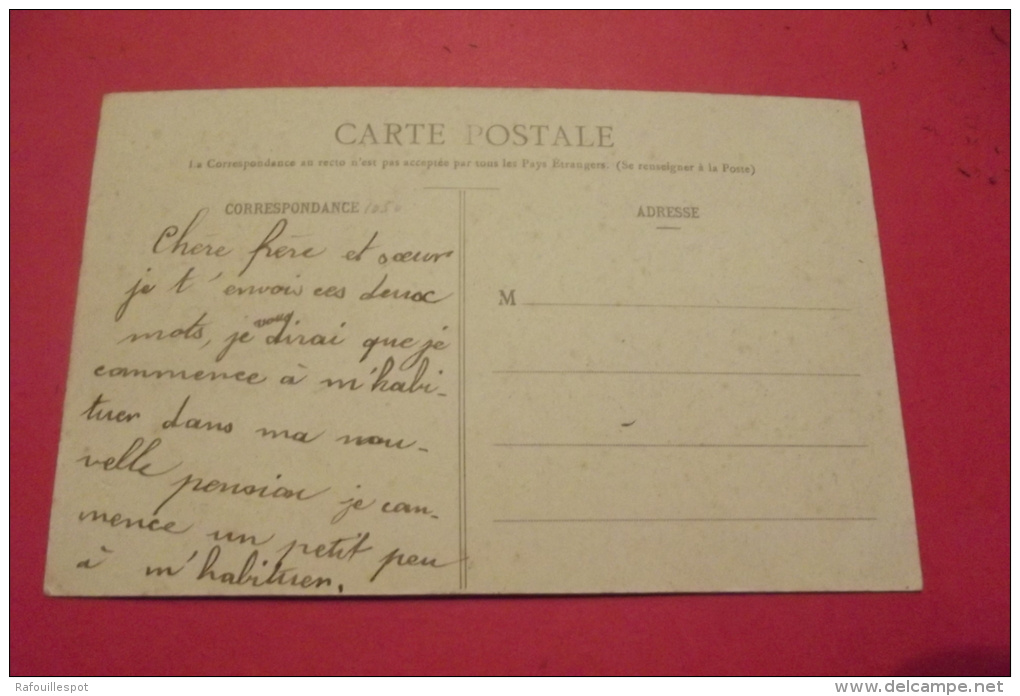 CARTE POSTALE
La Correspondance au recto n'est pas acceptée par tous les Pays Étrangers. (Se renseigner à la Poste)
CORRESPONDANCE 105
Chère frère et sœur
je t'envois ces deux
mots, je vous dirai que je
commence à m'habi-
tuer dans ma nou-
velle pension je com-
mence un petit peu
à m'habituer.
ADRESSE
M
Rafouillespot
www.delcampe.net